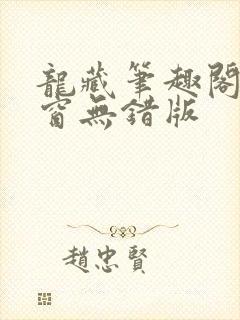 龍藏筆趣閣
窗無錯版
趙忠賢